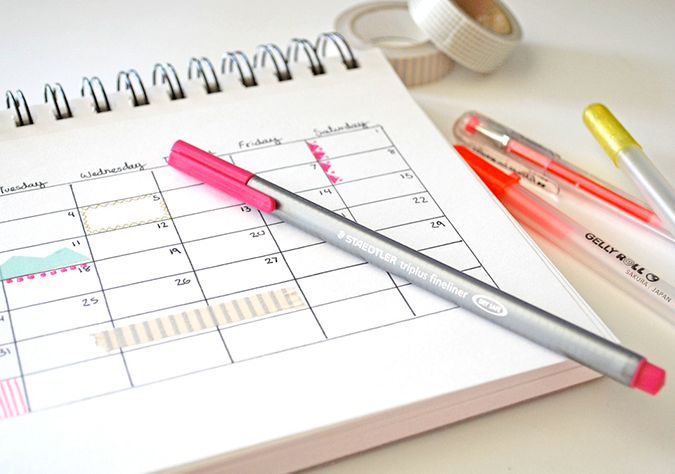 Tuesday Wednesday Friday Saturday
1
4 5 7 8
11 12 13 14 15
18 19 20 22
25 26 27 29
31
STAEDTLER triplus fineliner DRY SAFE
GELLY ROLL
SAKURA JAPAN